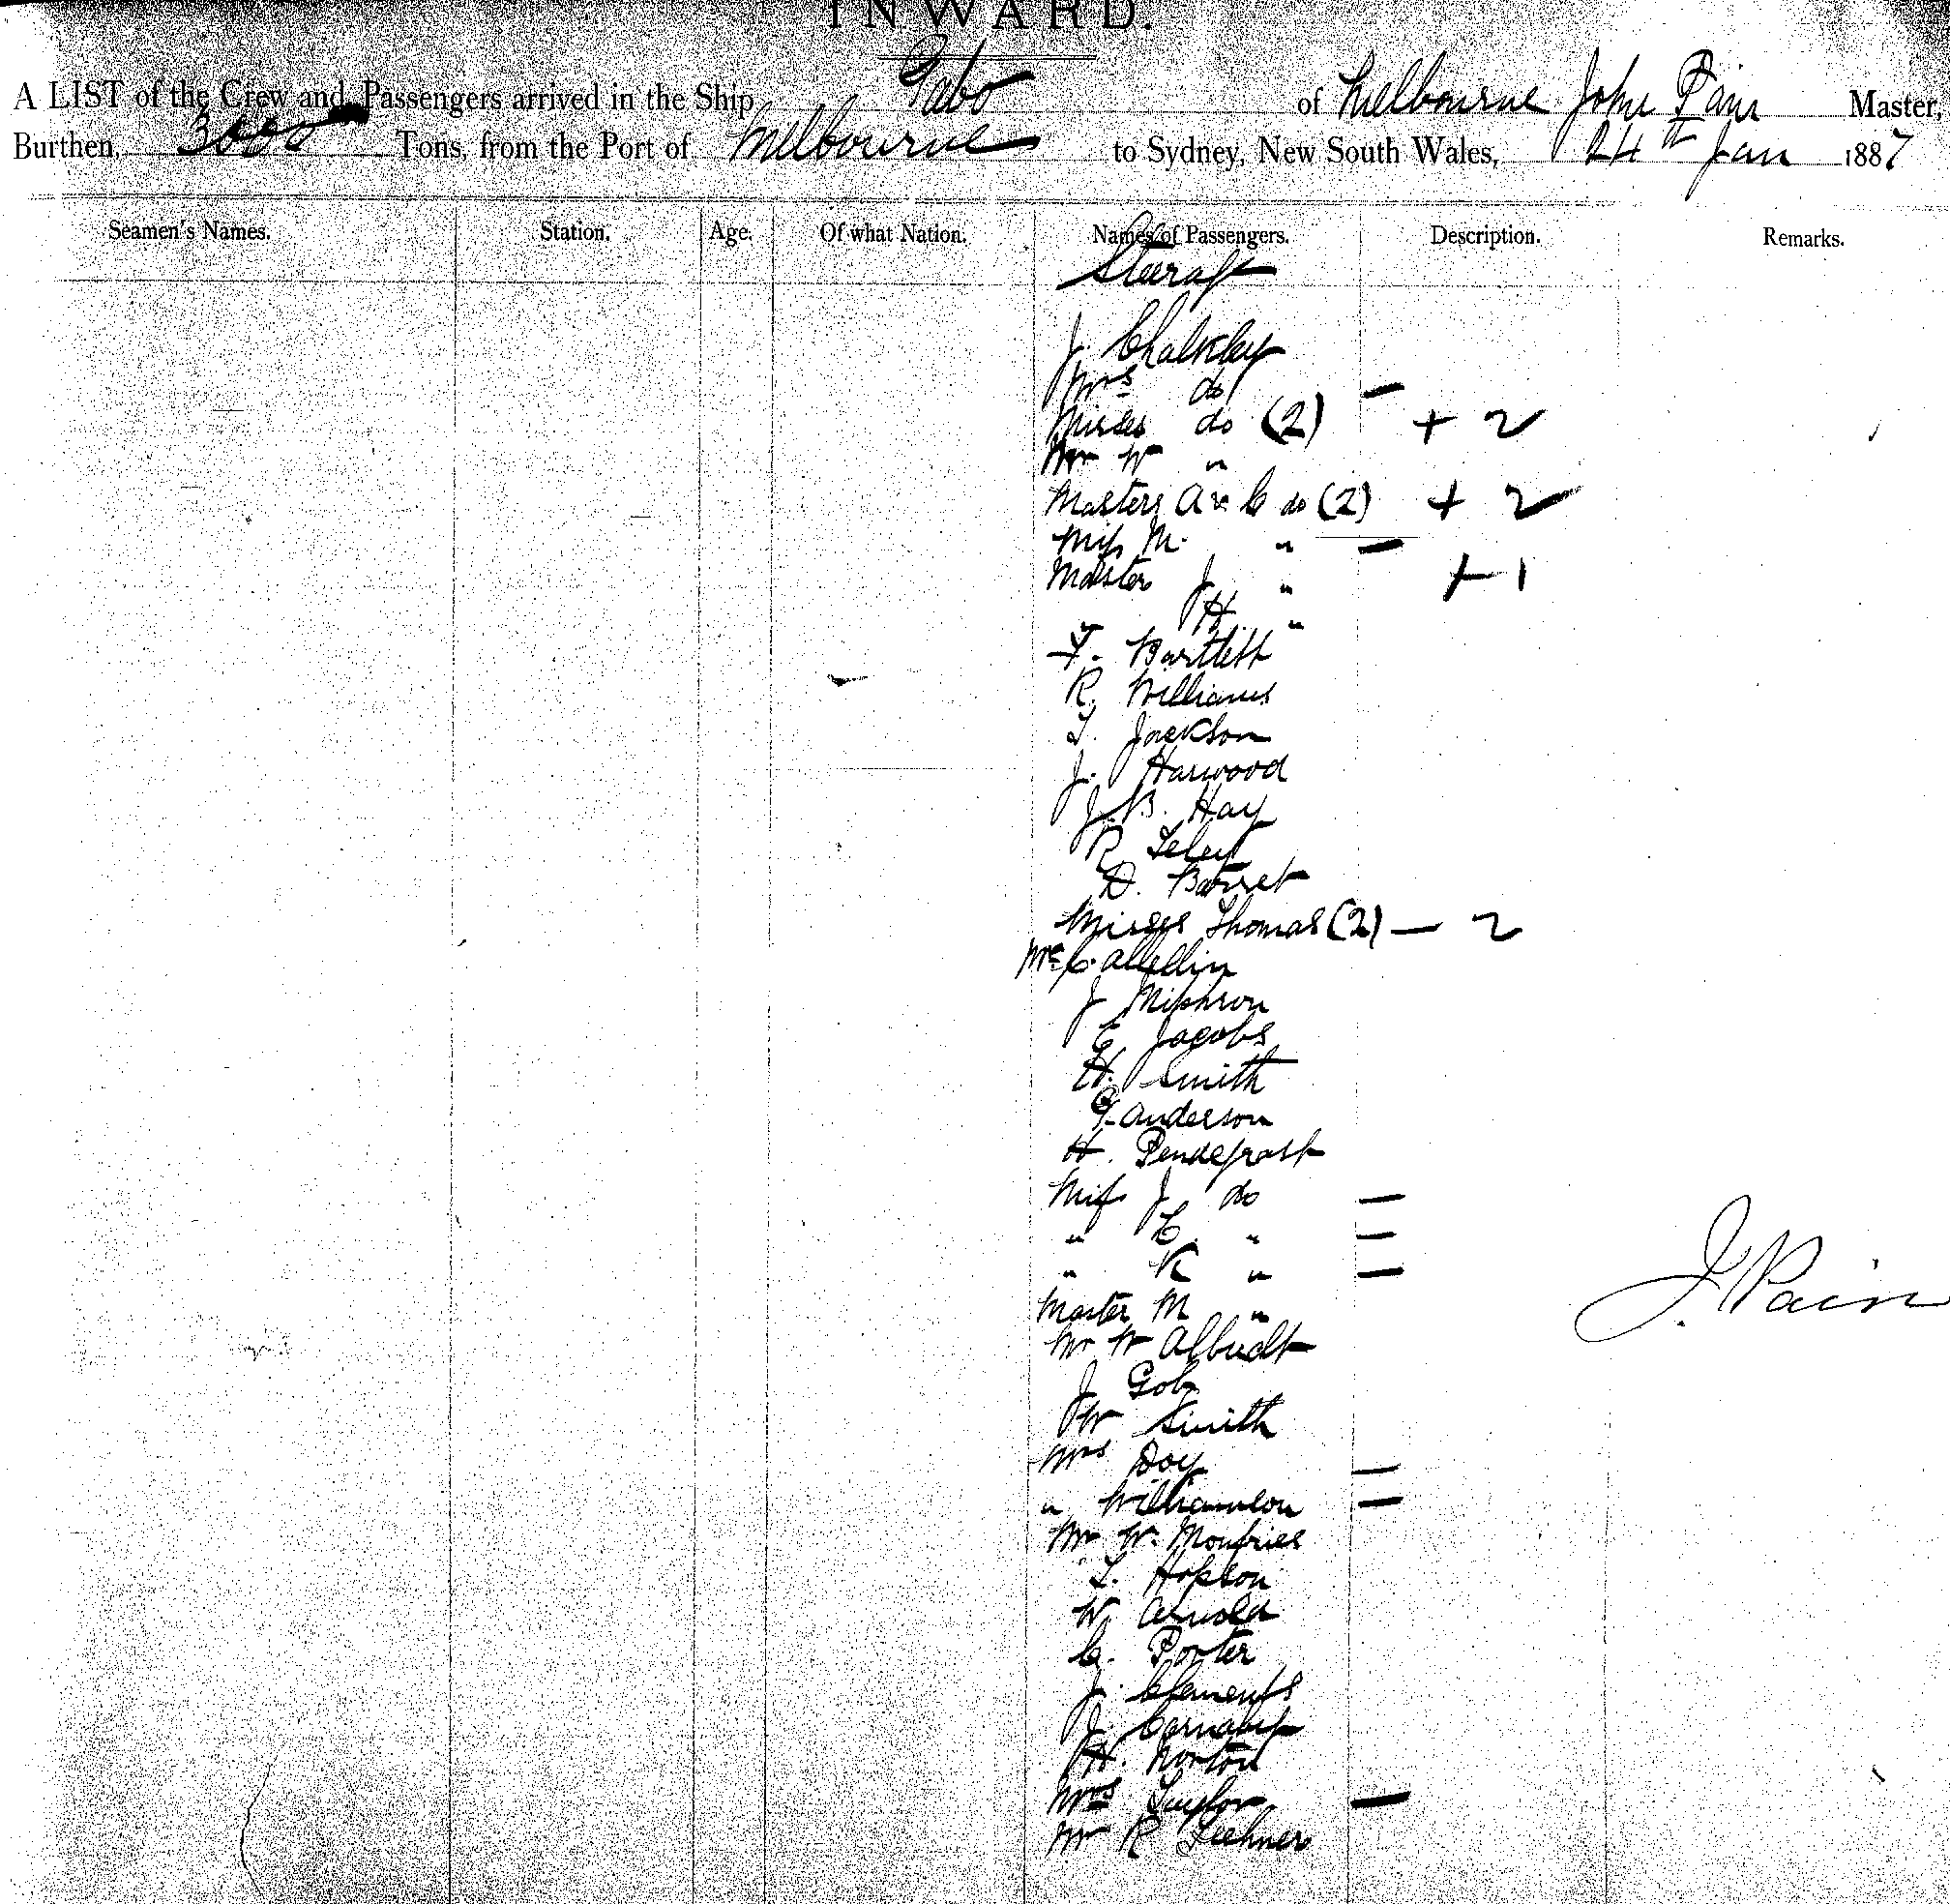 INWARD.
A LIST of the Crew and Passengers arrived in the Ship Gabo of Melbourne John Pain Master,
Burthen, 3000 Tons, from the Port of Melbourne to Sydney, New South Wales, 24th Jan 1887
Seamen's Names. Station. Age. Of what Nation. Names of Passengers. Description. Remarks.
Steerage
J. Chalkley
Mrs do —
Misses do (2) + 2
Mr W "
Masters A & C do (2) + 2
Miss M. " —
Master J " + 1
" H. "
F. Bartlett
R. Williams
T. Jackson
J. Harwood
J. B. Hay
R
D. Barret
Misses Thomas (2) — 2
Mr C.
J
E Jacobs
H. Smith
G. Anderson
H. Pendegrast
Miss J do —
" C. " —
" K " —
Master M "
J. Pain
Mr W
J
W Smith
Mrs Day —
" Williamson —
Mr W. Moubries
L. Hopson
W. Arnold
C. Porter
J. Clements
J.
H. Norton
Mrs Taylor —
Mr R